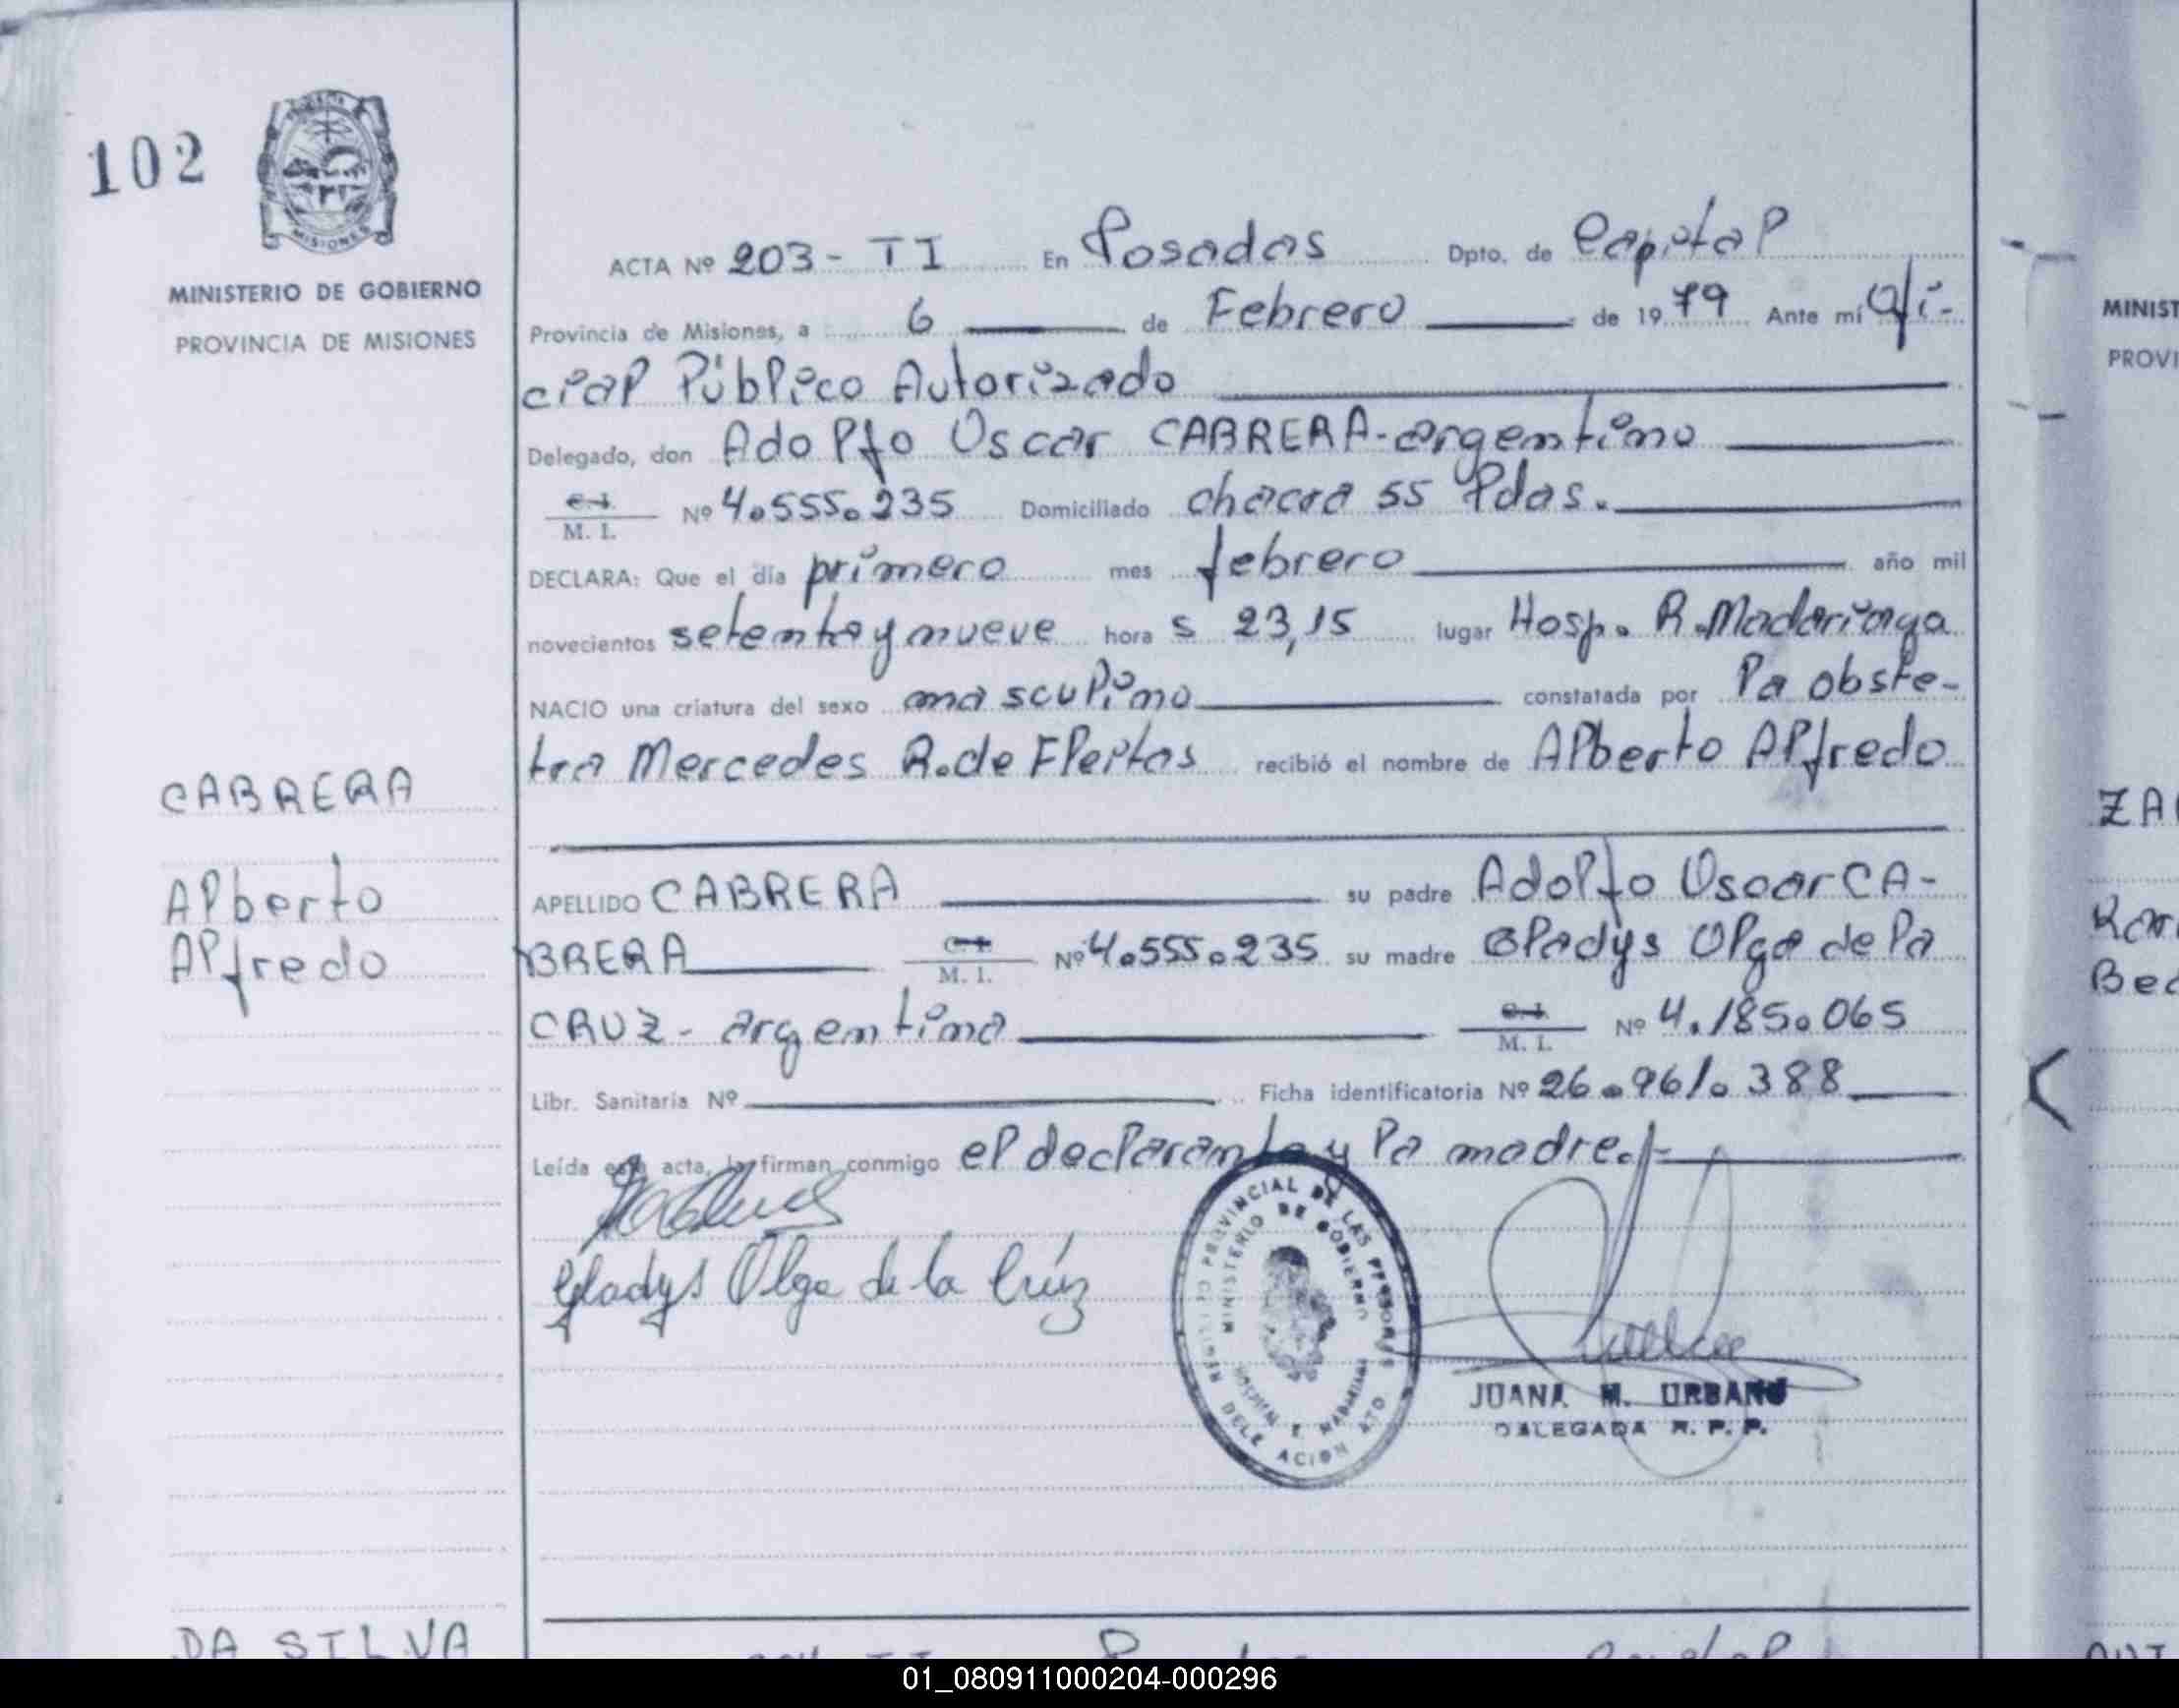 102
MISIONES
MINISTERIO DE GOBIERNO
PROVINCIA DE MISIONES
ACTA Nº 203 - TI En Posadas Dpto. de Capital
Provincia de Misiones, a 6 de Febrero de 1979 Ante mí Ofi-
cial Público Autorizado
Delegado, don Adolfo Oscar CABRERA - argentino
C.I.
M. I. Nº 4.555.235 Domiciliado chacra 55 Pdas.
DECLARA: Que el día primero mes febrero año mil
novecientos setenta y nueve hora s 23,15 lugar Hosp. R. Madariaga
NACIO una criatura del sexo masculino constatada por la obste-
tra Mercedes R. de Fleitas recibió el nombre de Alberto Alfredo
CABRERA
Alberto
Alfredo
APELLIDO CABRERA su padre Adolfo Oscar CA-
BRERA C.I.
M. I. Nº 4.555.235 su madre Gladys Olga de la
CRUZ - argentina C.I.
M. I. Nº 4.185.065
Libr. Sanitaria Nº Ficha identificatoria Nº 26.961.388
Leída esta acta, la firman conmigo el declarante y la madre.-
Gladys Olga de la Crúz
PROVINCIAL DE LAS PERSONAS
MINISTERIO DE GOBIERNO
DELEGACION
JUANA M. URBANO
DALEGADA R. P. P.
DA SILVA
MINIST
PROVI
ZA
Bec
01_080911000204-000296